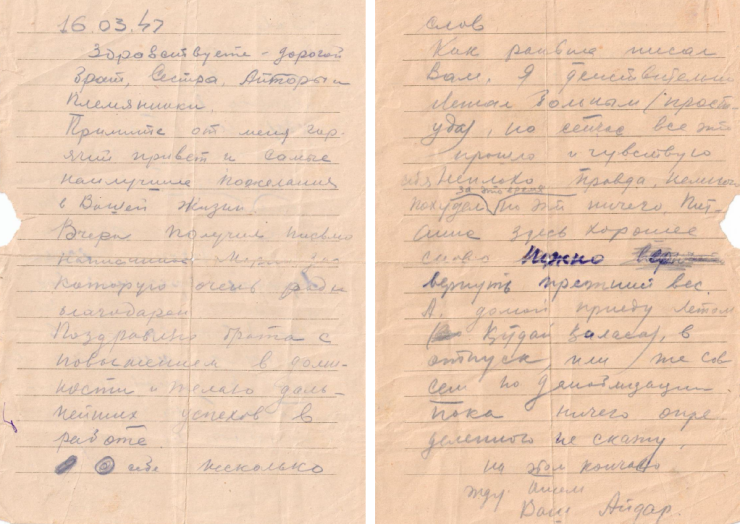 16.03.47
Здравствуйте - дорогой
Брат, Сестра,
Племянники.
Примите от меня гор-
ячий привет и самые
наилучшие пожелания
в Вашей жизни.
Вчера получил письмо
которую очень рад и
благодарен
Поздравляю брата с
повышением в долж-
ности и желаю даль-
нейших успехов в
работе.
о себе несколько
слов
Как раньше писал
Вам. Я действительно
лежал больным (прост-
уда), но сейчас все это
прошло и чувствую
себя неплохо правда, немного
за это время
похудал, но это ничего. Пит-
ание здесь хорошее
снова можно
вернуть прежний вес
А домой приеду летом
(Кудай каласа), в
отпуск или же сов
сем по демобилизации.
пока ничего опре
деленного не скажу.
на этом кончаю
жду ответ
Ваш Айдар.